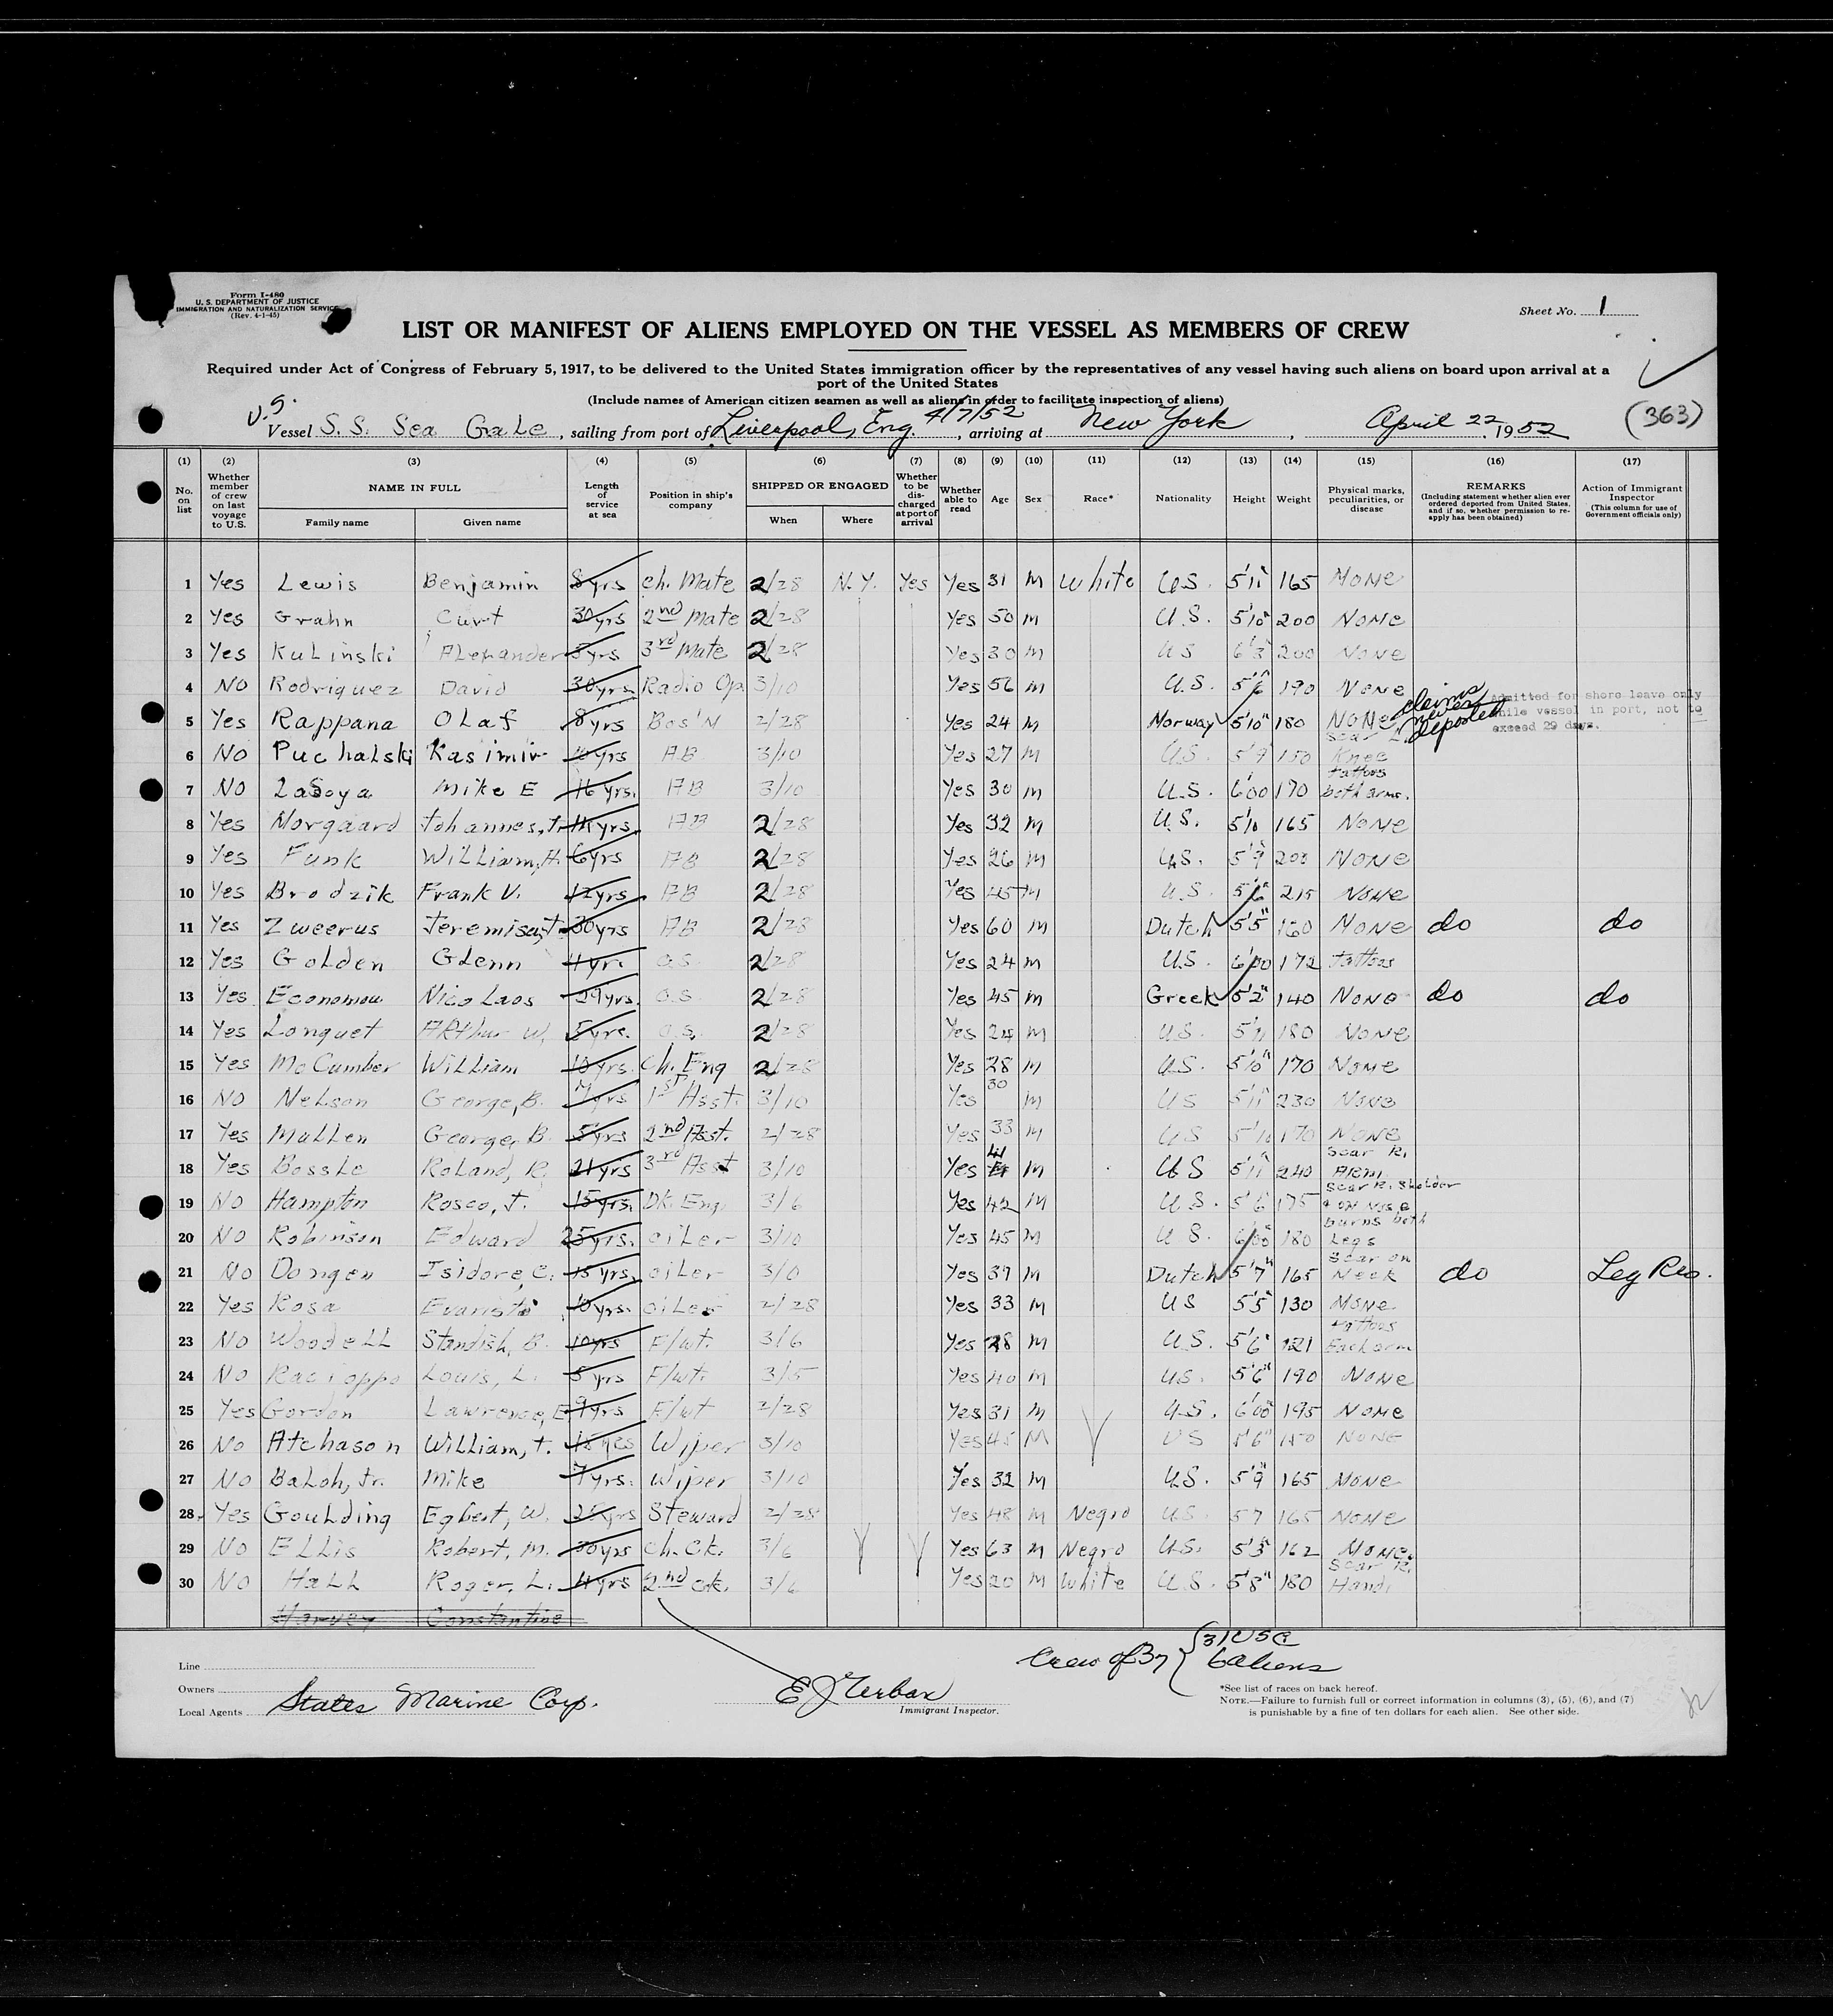 Form I-480
U. S. DEPARTMENT OF JUSTICE
IMMIGRATION AND NATURALIZATION SERVICE
(Rev. 4-1-45)
Sheet No. 1
LIST OR MANIFEST OF ALIENS EMPLOYED ON THE VESSEL AS MEMBERS OF CREW
Required under Act of Congress of February 5, 1917, to be delivered to the United States immigration officer by the representatives of any vessel having such aliens on board upon arrival at a
port of the United States
(Include names of American citizen seamen as well as aliens in order to facilitate inspection of aliens)
U.S. 4/7/52
Vessel S.S. Sea Gale, sailing from port of Liverpool, Eng., arriving at New York, April 22, 1952 (363)
(1) (2) (3) (4) (5) (6) (7) (8) (9) (10) (11) (12) (13) (14) (15) (16) (17)
No. on list
Whether member of crew on last voyage to U.S.
NAME IN FULL
Family name Given name
Length of service at sea
Position in ship's company
SHIPPED OR ENGAGED
When Where
Whether to be discharged at port of arrival
Whether able to read
Age Sex Race* Nationality Height Weight
Physical marks, peculiarities, or disease
REMARKS
(Including statement whether alien ever ordered deported from United States, and if so, whether permission to re-apply has been obtained)
Action of Immigrant Inspector
(This column for use of Government officials only)
1 Yes Lewis Benjamin 8yrs Ch. Mate 2/28 N.Y. Yes Yes 31 M White U.S. 5'11" 165 None
2 Yes Grahn Curt 30yrs 2nd Mate 2/28 Yes 50 M U.S. 5'10" 200 None
3 Yes Kulinski Alexander 8yrs 3rd Mate 2/28 Yes 30 M US 6'3" 200 None
4 No Rodriguez David 30yrs Radio Op 3/10 Yes 56 M U.S. 5'6" 190 None
5 Yes Rappana Olaf 8yrs Bos'N 2/28 Yes 24 M Norway 5'10" 180 None claims never deported Admitted for shore leave only while vessel in port, not to exceed 29 days.
6 No Puchalski Kasimir 10yrs AB 3/10 Yes 27 M U.S. 5'9" 150 Scar Knee
7 No LaSoya Mike E 16yrs. AB 3/10 Yes 30 M U.S. 6'00 170 tattoos both arms.
8 Yes Norgaard Johannes, Jr. 14yrs. AB 2/28 Yes 32 M U.S. 5'10 165 None
9 Yes Funk William, H. 6yrs AB 2/28 Yes 26 M U.S. 5'9" 200 None
10 Yes Brodzik Frank V. 12yrs AB 2/28 Yes 45 M U.S. 5'6" 215 None
11 Yes Zweerus Jeremias, T. 30yrs AB 2/28 Yes 60 M Dutch 5'5" 160 None do do
12 Yes Golden Glenn 4yrs O.S. 2/28 Yes 24 M U.S. 6'00 172 tattoos
13 Yes Economou Nicolaos 29yrs. O.S. 2/28 Yes 45 M Greek 5'2" 140 None do do
14 Yes Longuet Arthur W. 5yrs. O.S. 2/28 Yes 24 M U.S. 5'11 180 None
15 Yes McCumber William 10yrs. Ch. Eng 2/28 Yes 28 M U.S. 5'10" 170 None
16 No Nelson George, B. 7yrs 1st Asst. 3/10 Yes 30 M US 5'11" 230 None
17 Yes Mullen George, B. 5yrs 2nd Asst. 2/28 Yes 33 M US 5'10 170 None
18 Yes Bossle Roland, R. 21yrs 3rd Asst 3/10 Yes 41 M US 5'11" 240 Scar R. Arm.
19 No Hampton Rosco, J. 15yrs. Dk. Eng. 3/6 Yes 42 M U.S. 5'6" 175 Scar R. Sholder & on nose
20 No Robinson Edward 25yrs. oiler 3/10 Yes 45 M U.S. 6'00" 180 burns both Legs
21 No Dongen Isidore, C. 15yrs. oiler 3/0 Yes 39 M Dutch 5'7" 165 Scar on Neck do Leg Res.
22 Yes Rosa Evaristo 10yrs. oiler 2/28 Yes 33 M US 5'5" 130 None
23 No Woodell Standish, B. 10yrs F/wt. 3/6 Yes 28 M U.S. 5'6" 121 tattoos Each arm
24 No Racioppo Louis, L. 5yrs F/wt. 3/5 Yes 40 M US. 5'6" 190 None
25 Yes Gordon Lawrence, E 9yrs F/wt 2/28 Yes 31 M U.S. 6'00" 195 None
26 No Atchason William, J. Wiper 3/10 Yes 45 M US 5'6" 150 None
27 No Baloh, Jr. Mike 7yrs. Wiper 3/10 Yes 32 M U.S. 5'9" 165 None
28 Yes Goulding Egbert, W. yrs Steward 2/28 Yes 48 M Negro U.S. 5'7 165 None
29 No Ellis Robert, M. 30yrs Ch. Ck. 3/6 Yes 63 M Negro U.S. 5'3" 162 None.
30 No Hall Roger, L. 4yrs 2nd Ck. 3/6 Yes 20 M White U.S. 5'8" 180 Scar R. Hand.
Harvey Constantine
Crew of 37 { 31 USC
6 aliens
Line
Owners
Local Agents States Marine Corp.
Immigrant Inspector.
*See list of races on back hereof.
NOTE.—Failure to furnish full or correct information in columns (3), (5), (6), and (7)
is punishable by a fine of ten dollars for each alien. See other side.